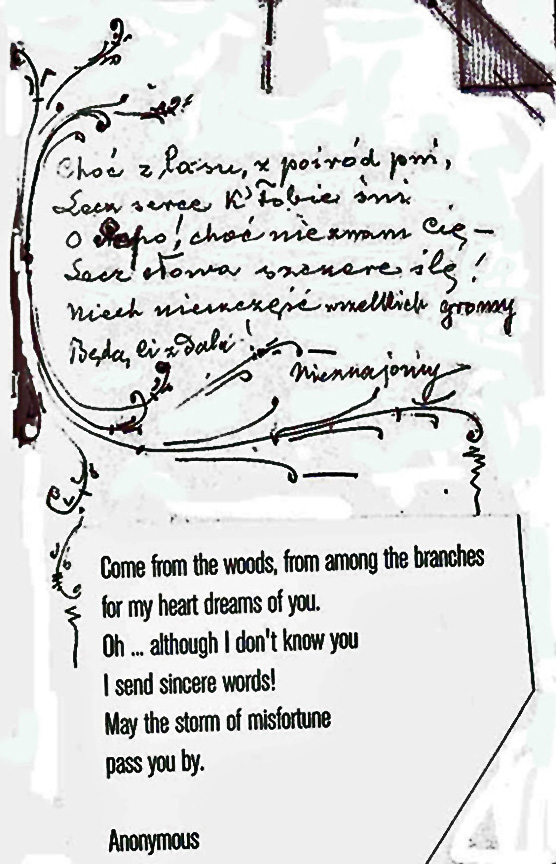 Choć z lasu, z pośród pni,
Lecz serce K'Tobie śni
O Pepo! choć nie znam Cię –
Lecz słowa szczere ślę!
Niech nieszczęść wszelkich gromy
Będą Ci z dala!
Nieznajomy
Come from the woods, from among the branches
for my heart dreams of you.
Oh ... although I don't know you
I send sincere words!
May the storm of misfortune
pass you by.
Anonymous